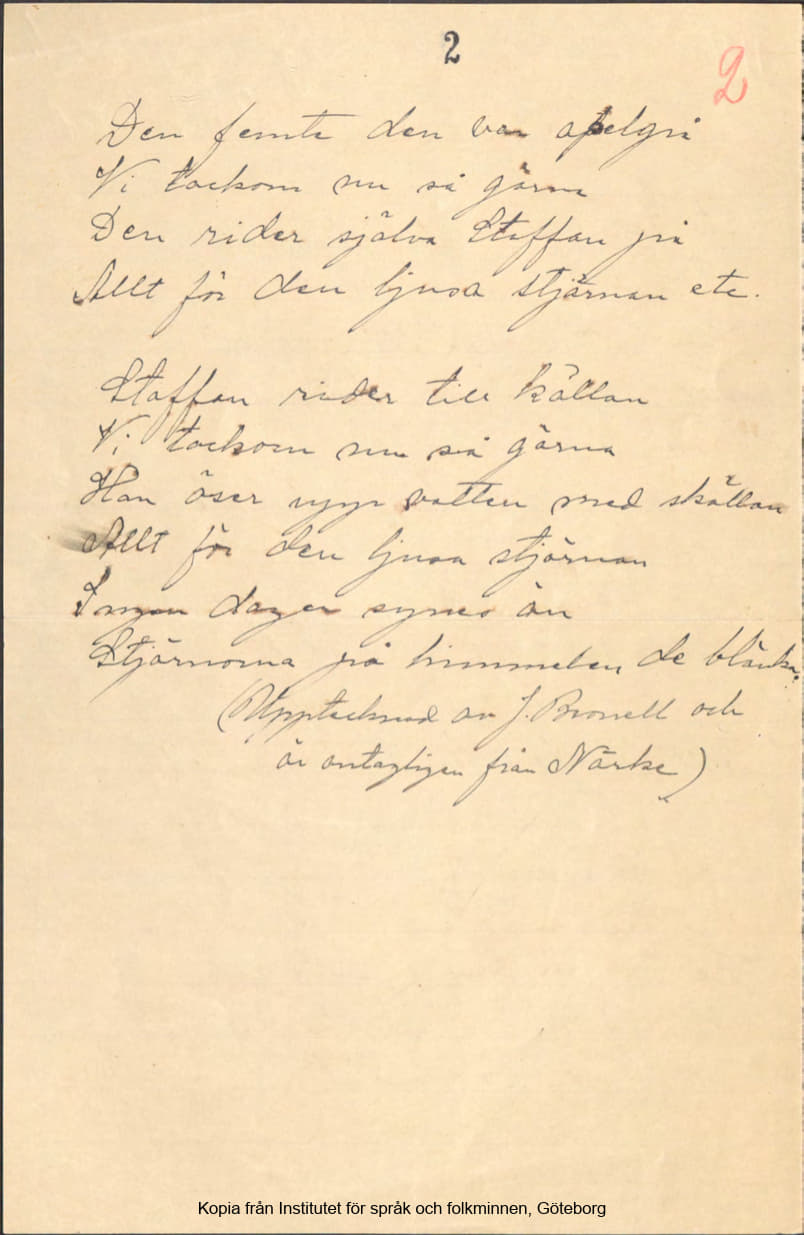 2
2
Den femte den var apelgrå
Vi tackom nu så gärna
Den rider själva Staffan på
Allt för den ljusa stjärnan etc.
Staffan rider till källan
Vi tackom nu så gärna
Han öser upp vatten med skållan
Allt för den ljusa stjärnan
Ingen dager synes än
Stjärnorna på himmelen de blänka.
(Upptecknad av J. Bronell och
är antagligen från Närke)
Kopia från Institutet för språk och folkminnen, Göteborg